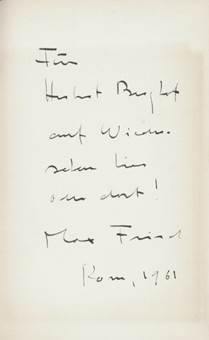 Für
Herbert Berghof
auf Wieder-
sehen hier
oder dort!
Max Frisch
Rom, 1961